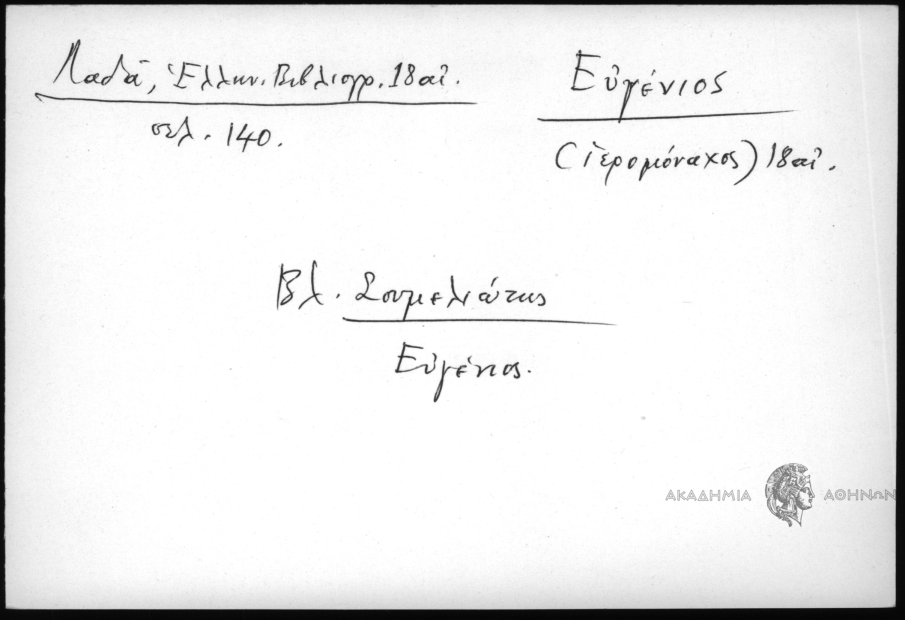 Λαδᾶ, Ἑλλην. Βιβλιογρ. 18 αἰ.
σελ. 140.
Εὐγένιος
(ἱερομόναχος) 18 αἰ.
Βλ. Σουμελιώτης
Εὐγένιος.
ΑΚΑΔΗΜΙΑ ΑΘΗΝΩΝ